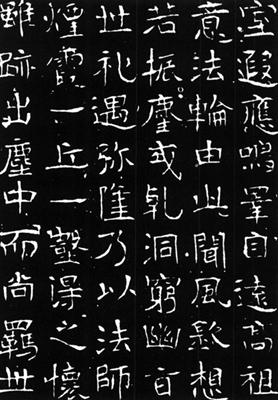 室遐應鳴皋自遠高祖
意法輪由此聞風欽想
若振塵或洞窮幽
世礼遇弥隆乃以法師
煙霞一丘一壑得之懷
雖跡出塵中而尚羈世